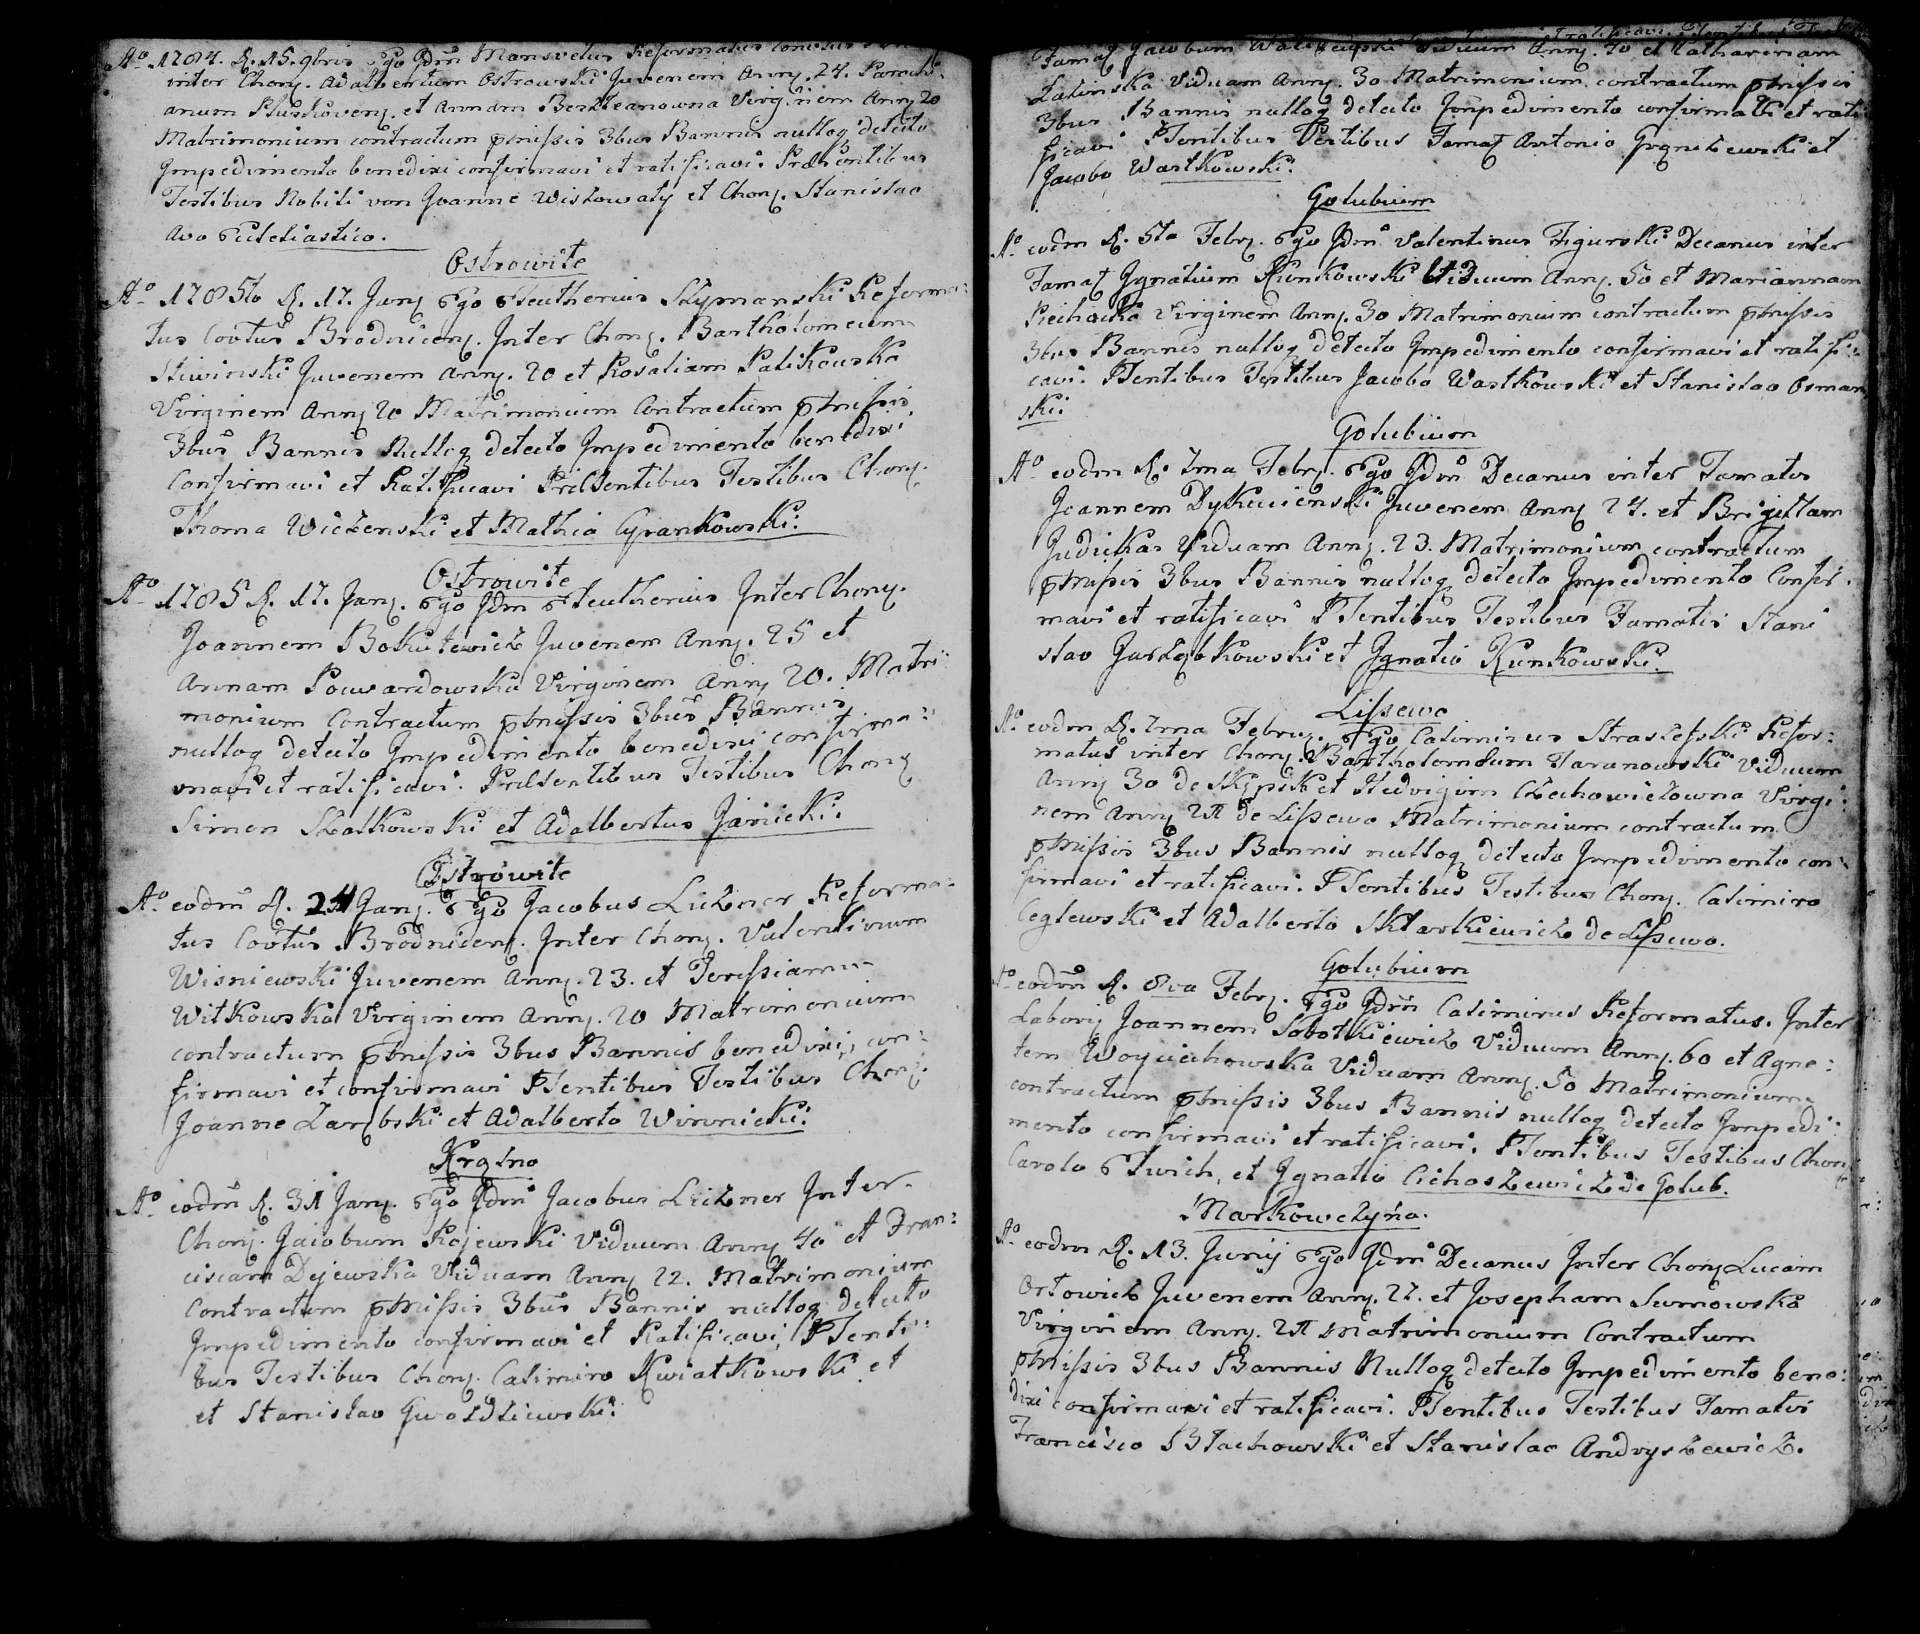 Ao 1784. D. 15. 9bris Ego Idm Mansvetus Reformatus
inter Chony. Adalbertum Ostrowski Juvenem Anny. 24. Paroch:
anum Pluskoveny. et Annam Virginem Anny 20
Matrimonium contractum pmissis 3bus Bannis nulloq detecto
Impedimento benedixi confirmavi et ratificavi. Præsentibus
Testibus Nobili von Joanne Wislowaty et Chony. Stanislao
Avo Ecclesiastico.
Ostrowite
Ao 1785to D. 17. Jany Ego Eleutherius Szymanski Reforma:
tus Cõvtus Brodniceny. Inter Chony. Bartholomeum
Sliwinski Juvenem Anny. 20 et Rosaliam Palikowska
Virginem Anny 20 Matrimonium Contractum pmissis
3bus Bannis Nulloq detecto Impedimento benedixi
Confirmavi et Ratificavi Præsentibus Testibus Chony.
Thoma Wiczenski et Mathia Cyrankowski:
Ostrowite
Ao 1785 D. 17. Jany. Ego Idm Eleutherius Inter Chony.
Joannem Juvenem Anny. 25 et
Annam Pouwardowska Virginem Anny 20. Matri:
monium Contractum pmissis 3bus Bannis
nulloq detecto Impedimento benedixi confirma:
mavi et ratificavi. Præsentibus Testibus Chony
Simon Szalkowski et Adalbertus Janicki:
Ostrowite
Ao eodm D. 24 Jany. Ego Jacobus Liczner Reforma:
tus Cõvtus Brodniceny. Inter Chony. Valentinum
Wisniewski Juvenem Anny. 23. et Teressiam
Witkowska Virginem Anny. 20 Matrimonium
contractum pmissis 3bus Bannis benedixi, con:
firmavi et confirmavi PSentibus Testibus Chony.
Joanne Zarembski et Adalberto Winnicki:
Krążno
Ao eodm D. 31 Jany. Ego Idm Jacobus Liczner Inter
Chony. Jacobum Kojewski Viduum Anny 40 et Fran:
ciscam Dejewska Viduam Anny 22. Matrimonium
Contractum pmissis 3bus Bannis nulloq detecto
Impedimento confirmavi et Ratificavi, PSenti:
bus Testibus Chony. Casimiro Kwiatkowski et
et Stanislao Gwozdziewski:
Famaty Jacobum Viduum Anny. 40 et Catharinam
Viduam Anny. 30 Matrimonium contractum pmissis
3bus Bannis nulloq detecto Impedimento confirmavi et rati
ficavi PSentibus Testibus Famaty Antonio et
Jacobo Wastkowski:
Golubium
Ao eodm D. 5ta Febry. Ego Idm Valentinus Figurski Decanus inter
Famaty Ignatium Kunkowski Viduum Anny. 50 et Mariannam
Virginem Anny. 30 Matrimonium contractum pmissis
3bus Bannis nulloq detecto Impedimento confirmavi et ratifi:
cavi. PSentibus Testibus Jacobo Wastkowski et Stanislao Osman
ski:
Golubium
Ao eodm D. 7ma Febry. Ego Idm Decanus inter Famatos
Joannem Juvenem Anny 24. et Brigittam
Viduam Anny. 23. Matrimonium contractum
pmissis 3bus Bannis nulloq detecto Impedimento Confir
mavi et ratificavi PSentibus Testibus Famatis Stani
slao et Ignatio Kunkowski.
Lissewo
Ao eodm D. 7ma Febry. Ego Casimirus Refor:
matus inter Chony. Bartholomeum Taranowski Viduum
Anny 30 de et Hedvigim Czechowiczowna Virgi:
nem Anny 2π de Lissewo Matrimonium contractum
pmissis 3bus Bannis nulloq detecto Impedimento con:
firmavi et ratificavi. PSentibus Testibus Chony. Casimiro
Ceglewski et Adalberto Sklarkiewicz de Lissewo.
Golubium
Ao eodm D. 8va Febry. Ego Idm Casimirus Reformatus. Inter
Labory Joannem Sobotkiewicz Viduum Anny. 60 et Agne:
tem Woyciechowska Viduam Anny. 50 Matrimonium
contractum pmissis 3bus Bannis nulloq detecto Impedi:
mento confirmavi et ratificavi. PSentibus Testibus Chony
Carolo et Ignatio Cichoszewicz de Golub.
Markowczyna.
Ao eodm D. 13. Junij Ego Idm Decanus Inter Chony Lucam
Ortowicz Juvenem Anny. 27. et Josepham Sumowska
Virginem Anny. 2π Matrimonium Contractum
pmissis 3bus Bannis Nulloq detecto Impedimento bene:
dixi confirmavi et ratificavi. PSentibus Testibus Famatis
Francisco Blachowski et Stanislao Andryszewicz.